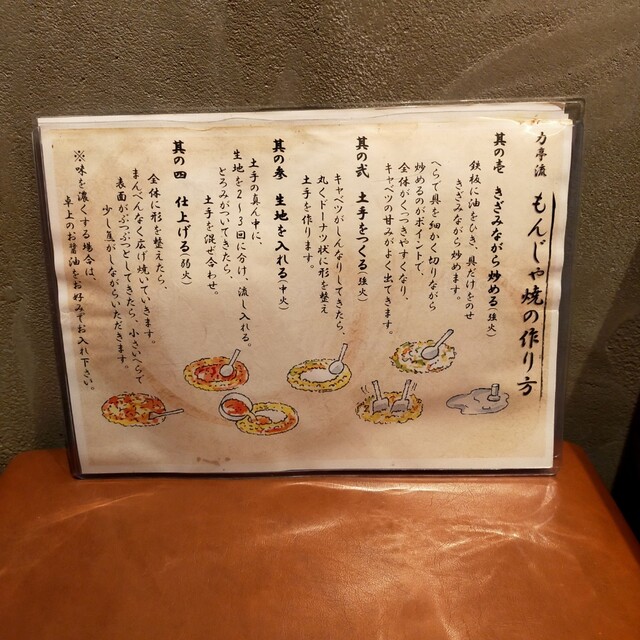 力亭流
もんじゃ焼の作り方
其の壱 きざみながら炒める(強火)
鉄板に油をひき、具だけをのせ
きざみながら炒めます。
へらで具を細かく切りながら
炒めるのがポイントで、
全体がくつきやすくなり、
キャベツの甘みがよく出てきます。
其の弐 土手をつくる(強火)
キャベツがしんなりしてきたら、
丸くドーナツ状に形を整え
土手を作ります。
其の参 生地を入れる(中火)
土手の真ん中に、
生地を2〜3回に分け、流し入れる。
とろみがついてきたら、
土手を混ぜ合わせ。
其の四 仕上げる(弱火)
全体に形を整えたら、
まんべんなく広げ焼いていきます。
表面がぷつぷつとしてきたら、小さいへらで
少し焦がしながらいただきます。
※味を濃くする場合は、
卓上のお醤油をお好みでお入れ下さい。